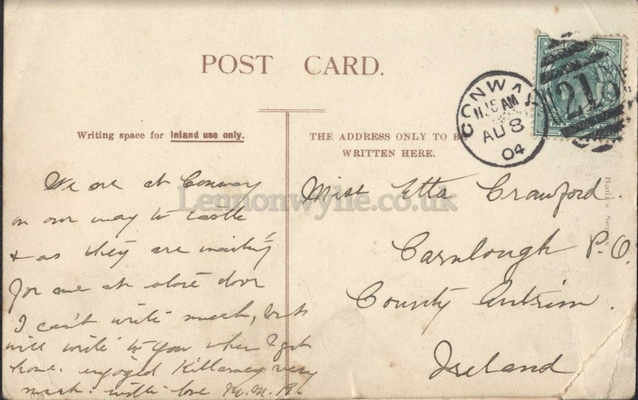 POST CARD.
Writing space for inland use only.
THE ADDRESS ONLY TO BE
WRITTEN HERE.
CONWAY
11.15 AM
AU 8
04
21
We are at Conway
on our way to castle
& as they are waiting
for me at store door
I can't write much, but
will write to you when I get
home. enjoyed Killarney very
much. with love M.M.R.
Miss Etta Crawford.
Carnlough P.O.
County Antrim.
Ireland
Lennonwylie.co.uk